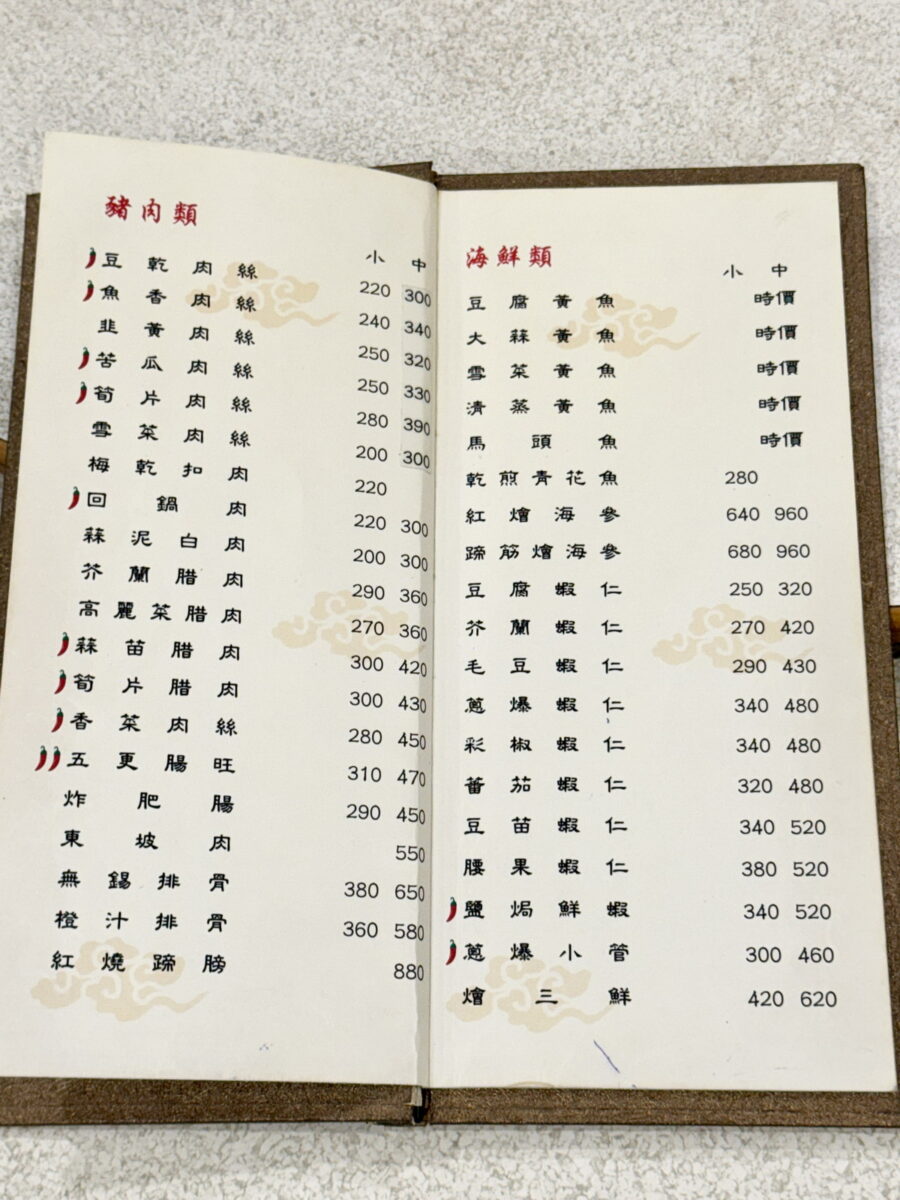 豬肉類
小 中
豆乾肉絲 220 300
魚香肉絲 240 340
韭黃肉絲 250 320
苦瓜肉絲 250 330
筍片肉絲 280 390
雪菜肉絲 200 300
梅乾扣肉 220
回鍋肉 220 300
蒜泥白肉 200 300
芥蘭腊肉 290 360
高麗菜腊肉 270 360
蒜苗腊肉 300 420
筍片腊肉 300 430
香菜肉絲 280 450
五更腸旺 310 470
炸肥腸 290 450
東坡肉 550
無錫排骨 380 650
橙汁排骨 360 580
紅燒蹄膀 880
海鮮類
小 中
豆腐黃魚 時價
大蒜黃魚 時價
雪菜黃魚 時價
清蒸黃魚 時價
馬頭魚 時價
乾煎青花魚 280
紅燴海參 640 960
蹄筋燴海參 680 960
豆腐蝦仁 250 320
芥蘭蝦仁 270 420
毛豆蝦仁 290 430
蔥爆蝦仁 340 480
彩椒蝦仁 340 480
蕃茄蝦仁 320 480
豆苗蝦仁 340 520
腰果蝦仁 380 520
鹽焗鮮蝦 340 520
蔥爆小管 300 460
燴三鮮 420 620